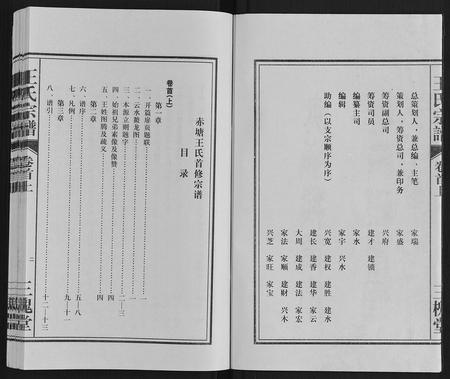 王氏宗譜
卷首上
三槐堂
总策划人，兼总编、主笔 家瑞
策划人、筹资总司，兼印务 家盛
筹资副总司 兴府
筹资司员 建才 建锁
编纂主司 家水
编辑 家宇 兴水
助编（以支宗顺序为序） 兴宽 建权 建胜 建水
建长 建香 建华 家云
大周 建成 建法 家宏
家法 家顺 建财 兴木
兴芝 家旺 家宝
赤塘王氏首修宗谱
目录
卷首(上)
第一章
一、开篇扉页题联 一
二、云水毓龙图 一
三、本源立则题字 二—三
四、始祖兄弟素像及像赞 四
五、王姓图腾及疏义 四
第二章
六、谱序 五—八
七、凡例 九—十一
第三章
八、谱引 十二—十三
王氏宗譜
卷首上
二
三槐堂